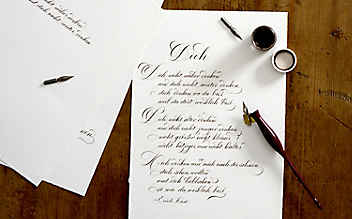 nicht weiter denken
Dich
Dich nicht näher denken
und dich nicht weiter denken
dich denken wo du bist
weil du dort wirklich bist
Dich nicht älter denken
und dich nicht jünger denken
nicht größer nicht kleiner
nicht hitziger und nicht kälter
Dich denken und mich nach dir sehnen
dich sehen wollen
und dich liebhaben
so wie du wirklich bist
Erich Fried